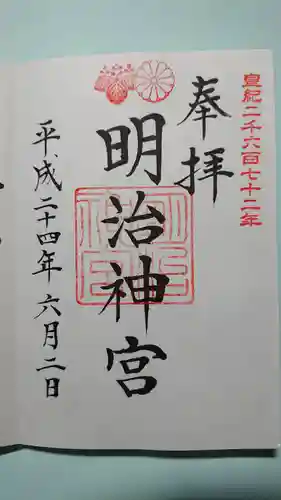 皇紀二千六百七十二年
奉拝
明治神宮
平成二十四年六月二日